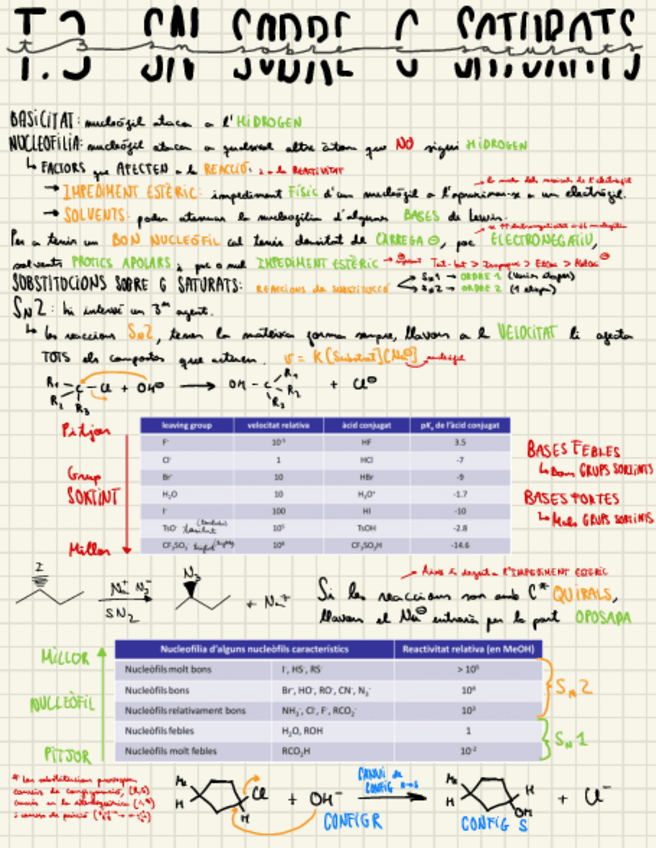 T.3 SN SOBRE C SATURATS
BASICITAT: nucleòfil ataca a l'HIDROGEN
NUCLEOFILIA: nucleòfil ataca a qualsevol altre àtom que NO sigui HIDROGEN
↳ FACTORS que AFECTEN a la REACCIÓ: i a la REACTIVITAT
→ IMPEDIMENT ESTÈRIC: impediment FÍSIC d'un nucleòfil a l'aproximar-se a un electròfil.
→ SOLVENTS: poden atenuar la nucleofilia d'algunes BASES de Lewis.
Per a tenir un BON NUCLEÒFIL cal tenir densitat de CÀRREGA ⊖, poc ELECTRONEGATIU,
solvents PRÒTICS APOLARS i poc o nul IMPEDIMENT ESTÈRIC
SUBSTITUCIONS SOBRE C SATURATS: REACCIONS de SUBSTITUCIÓ
SN1 → ORDRE 1 (varies etapes)
SN2 → ORDRE 2 (1 etapa)
SN2: hi intervé un 3er agent.
↳ les reaccions SN2, tenen la mateixa forma sempre, llavors a la VELOCITAT li afecta
TOTS els compostos que actuen. v = K[Substrat][Nu⊖] nucleòfil
R1 R2 R3 C-Cl + OH⊖ → OH-C R1 R2 R3 + Cl⊖
Pitjor
Grup
SORTINT
Millor
leaving group velocitat relativa àcid conjugat pKa de l'àcid conjugat
F- 10-5 HF 3.5
Cl- 1 HCl -7
Br- 10 HBr -9
H2O 10 H3O+ -1.7
I- 100 HI -10
TsO- tosilat 105 TsOH -2.8
CF3SO3- triflat 108 CF3SO3H -14.6
BASES FEBLES
↳ Bons GRUPS SORTINTS
BASES FORTES
↳ Mals GRUPS SORTINTS
I Na+ N3- SN2 N3 + Na+
Això és degut a l'IMPEDIMENT ESTÈRIC
Si les reaccions son amb C* QUIRALS,
llavors el Nu⊖ entrarà per la part OPOSADA
MILLOR
NUCLEÒFIL
PITJOR
Nucleofília d'alguns nucleòfils característics Reactivitat relativa (en MeOH)
Nucleòfils molt bons I-, HS-, RS- > 105
Nucleòfils bons Br-, HO-, RO-, CN-, N3- 104
Nucleòfils relativament bons NH3, Cl-, F-, RCO2- 103
Nucleòfils febles H2O, ROH 1
Nucleòfils molt febles RCO2H 10-2
SN2
SN1
Me H Cl H + OH- CANVI de CONFIG R→S Me H H OH + Cl-
CONFIG R CONFIG S